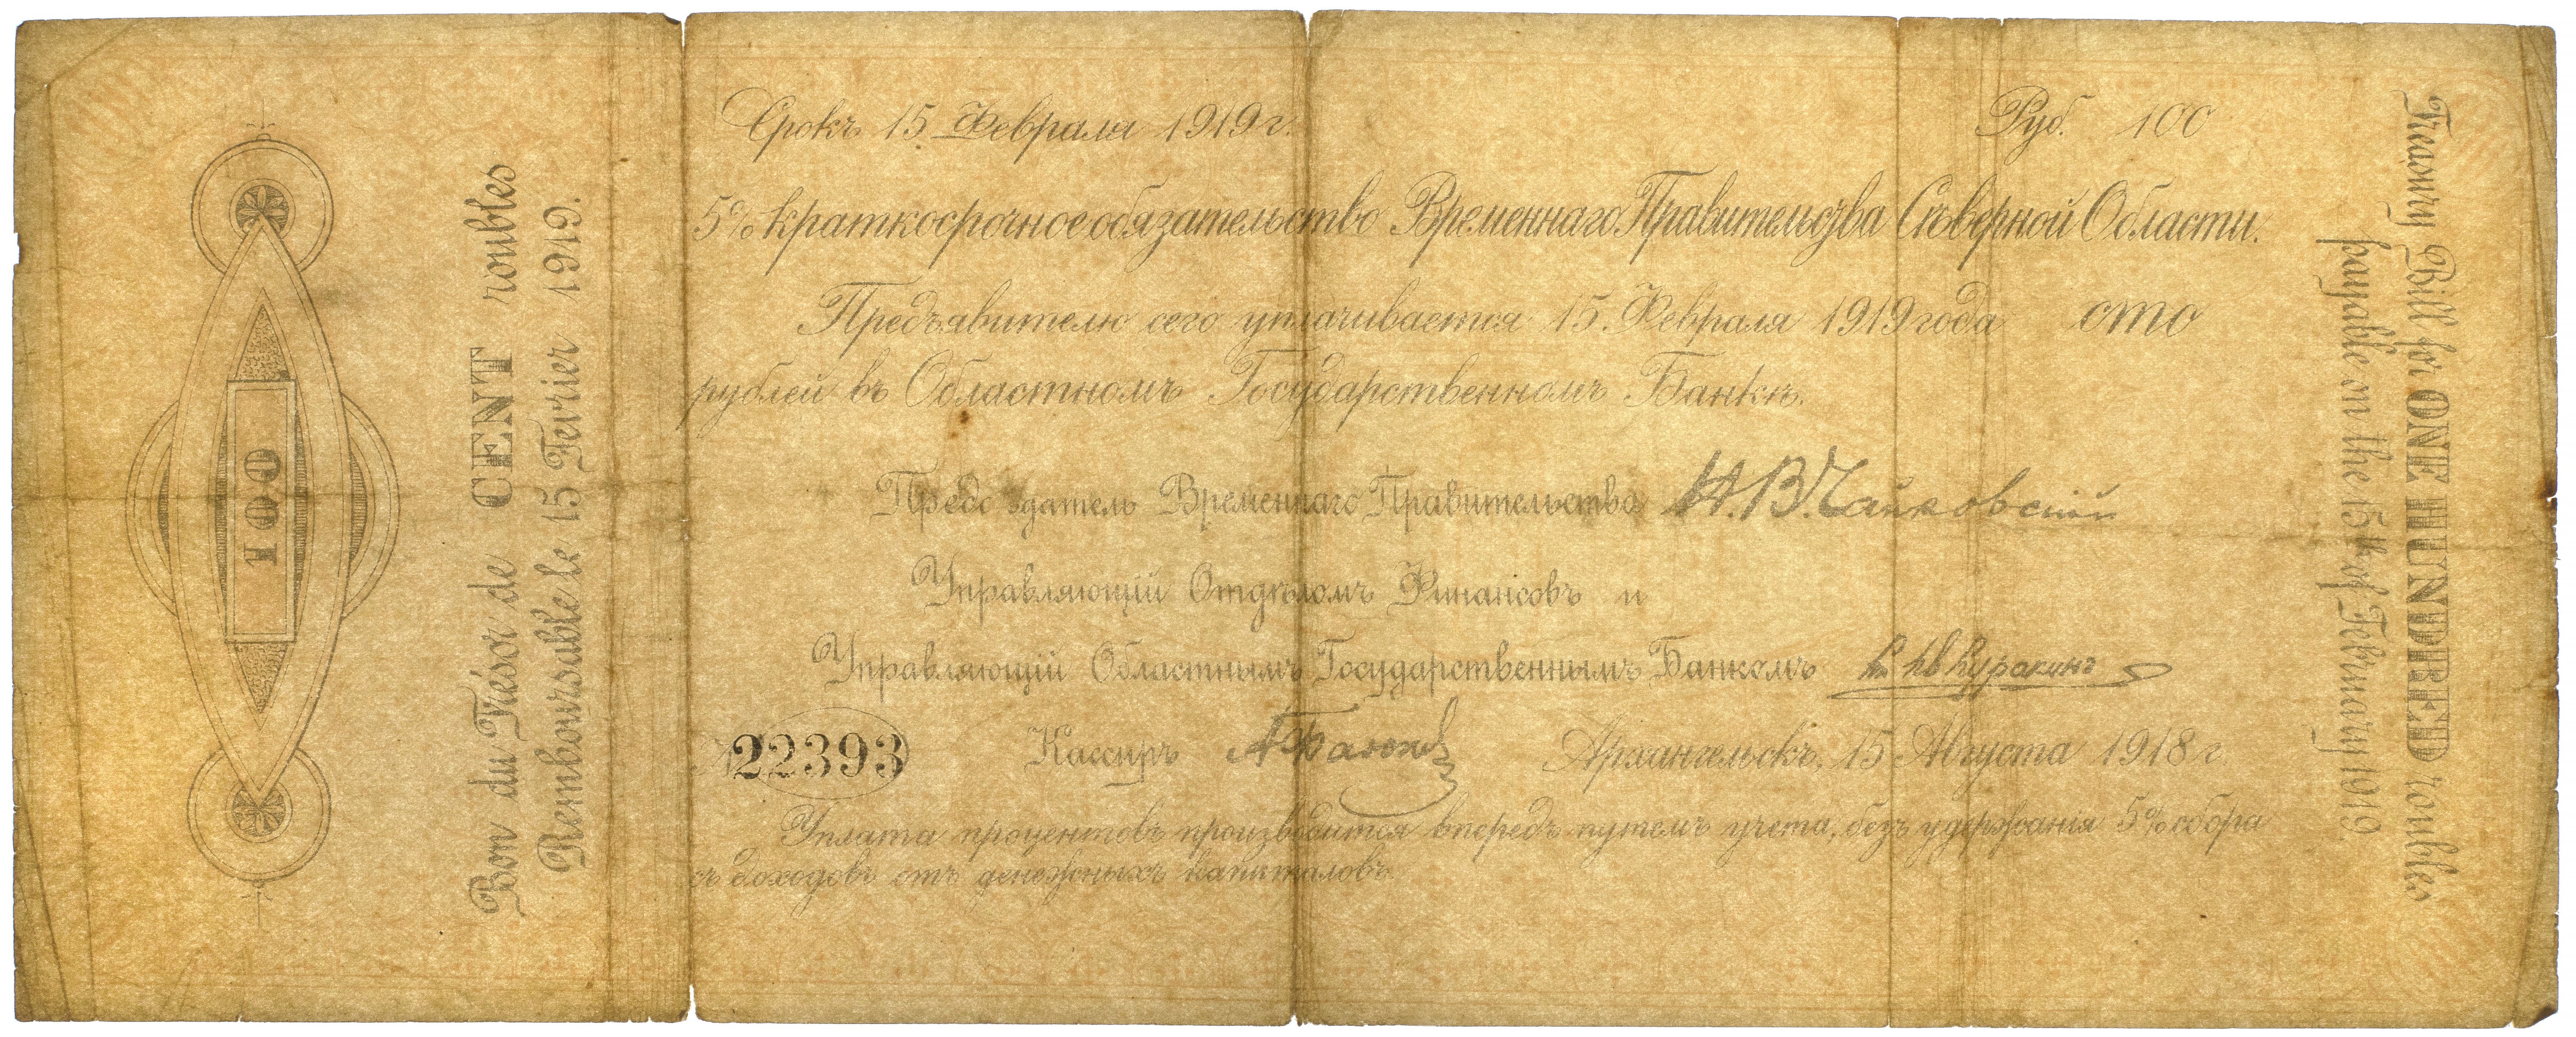 100
Bon du Trésor de CENT roubles
Remboursable le 15 Fevrier 1919.
Срокъ 15 Февраля 1919 г.
Руб. 100
5% краткосрочное обязательство Временнаго Правительства Сѣверной Области.
Предъявителю сего уплачивается 15. Февраля 1919 года сто
рублей въ Областномъ Государственномъ Банкѣ.
Предсѣдатель Временнаго Правительства Н.В.Чайковскій
Управляющій Отдѣломъ Финансовъ и
Управляющій Областнымъ Государственнымъ Банкомъ Куракинъ
№ 22393 Кассиръ Архангельскъ, 15 Августа 1918 г.
Уплата процентовъ производится впередъ путемъ учета, безъ удержания 5% сбора
съ доходовъ отъ денежныхъ капиталовъ.
Treasury Bill for ONE HUNDRED roubles
payable on the 15th of February 1919.